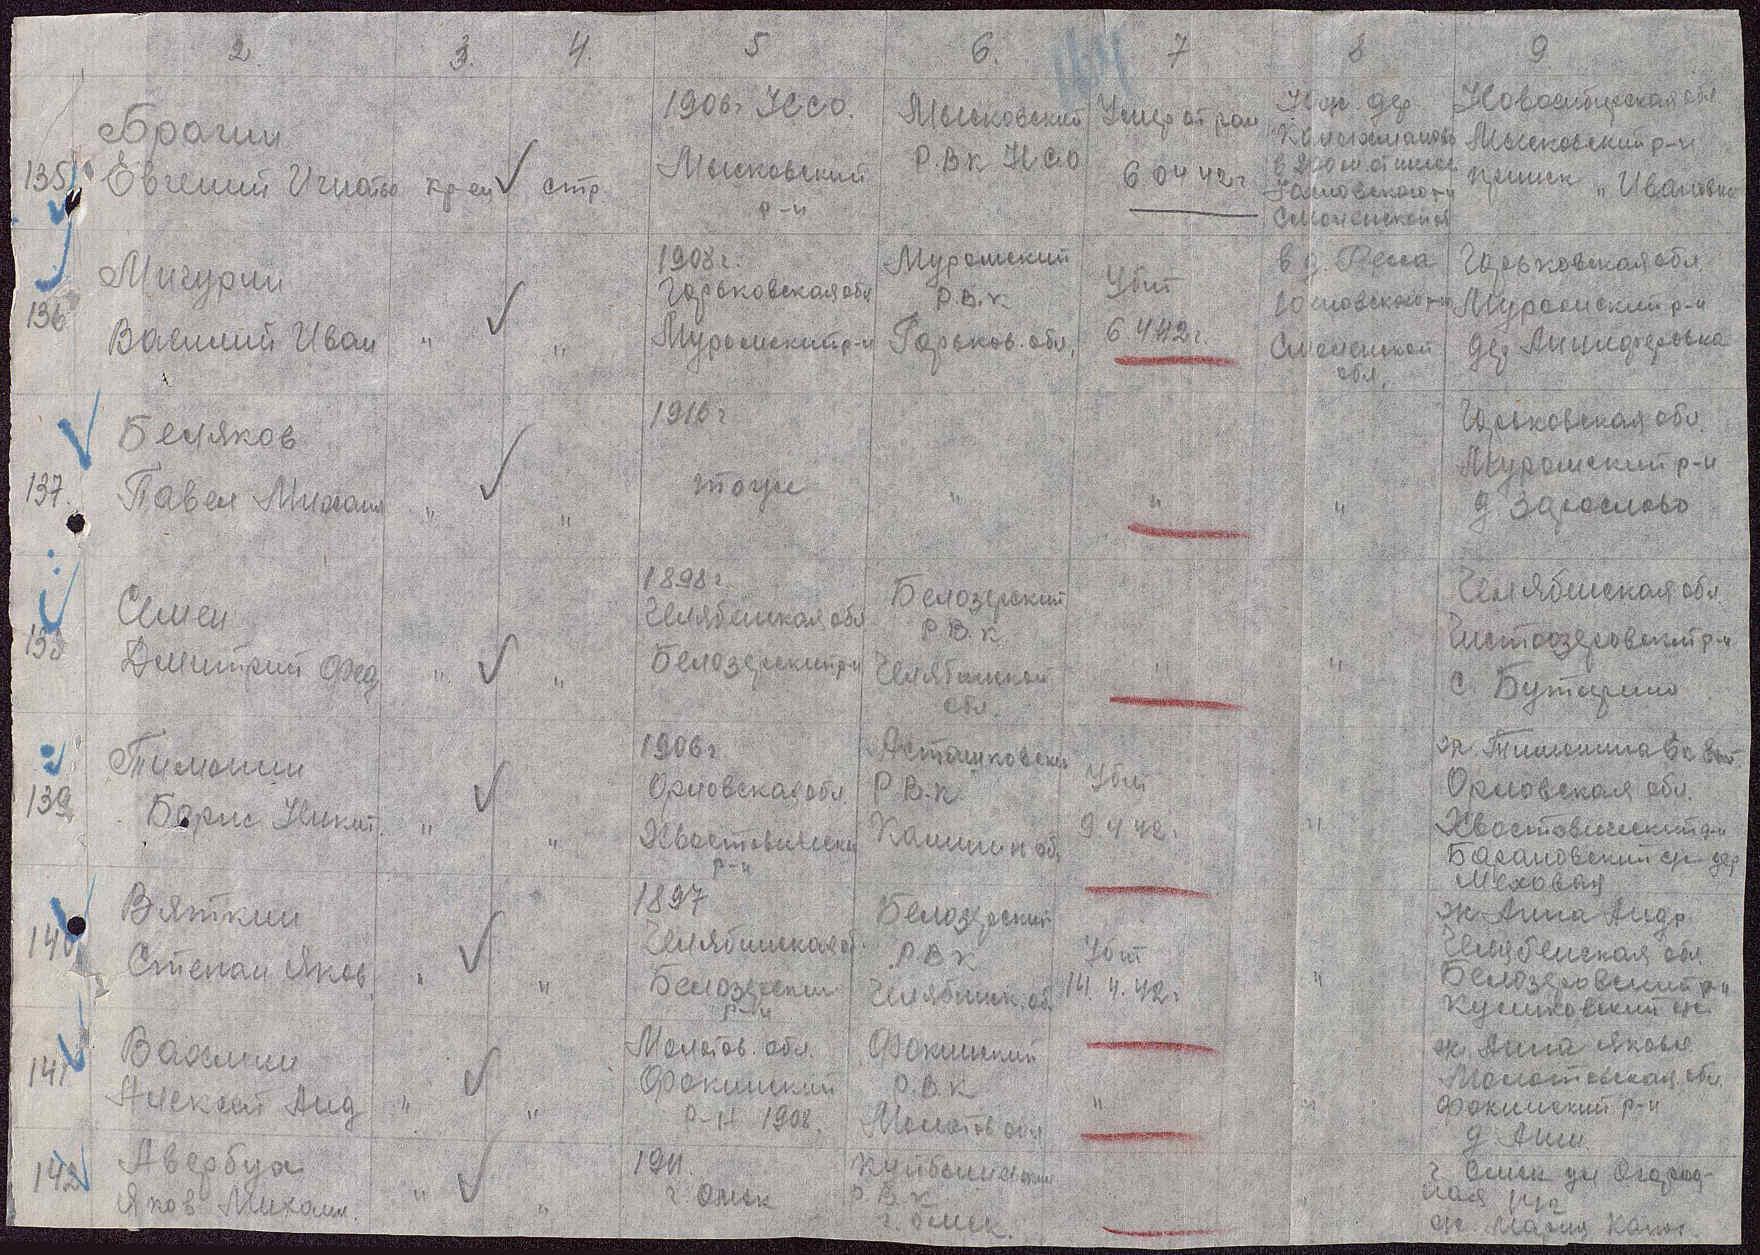 2. 3. 4. 5 6. 7 8 9
135
Брагин
Евгений Игнатье
кр-ец
стр.
1906г НСО.
Мысковский
р-н
Мысковский
Р.В.К НСО
Умер от ран
6 04 42г
Юж. дер
Смоленской
Новосибирская обл
Мысковский р-н
прииск "Ивановка
136
Мичурин
Василий Иван
"
"
1908г.
Горьковская обл
Муромский р-н
Муромский
Р.В.К
Горьков. обл.
Убит
6 4 42г.
в д. Ресса
Смоленской
обл.
Горьковская обл
Муромский р-н
дер
137.
Беляков
Павел Михаил
"
"
1916г
тоже
"
"
"
Горьковская обл.
Муромский р-н
д.
138
Семен
Дмитрий Фед
"
"
1898г.
Челябинская обл
Белозерский р-н
Белозерский
Р.В.К
Челябинской
обл.
"
"
Челябинская обл
р-н
с. Бутырино
139
Тимонин
Борис Никит.
"
"
1906г
Орловская обл.
Хвостовически
р-н
Р.В.К
Калинин об.
Убит
9 4 42г
"
ж. Тимонина
Орловская обл.
Хвостовический р-н
Барановский с/с дер
Меховая
140
Вяткин
Степан Яков
"
"
1897
Челябинская об.
Белозерский
р-н
Белозерский
Р.В.К
Челябинск. об
Убит
14. 4. 42г
"
ж Анна Андр
Челябинская обл
Белозеровский р-н
141
Вахлин
Алексей Анд
"
"
Молотов. обл.
Фокинский
р-н 1908.
Фокинский
Р.В.К
Молотов обл
"
"
ж. Анна Яковл
Молотовская обл.
Фокинский р-н
д
142
Авербух
Яков Михаил.
"
"
1911.
г Омск
Куйбышевский
Р.В.К
г. Омск.
г. Омск ул Огород-
ная
ж. Мария